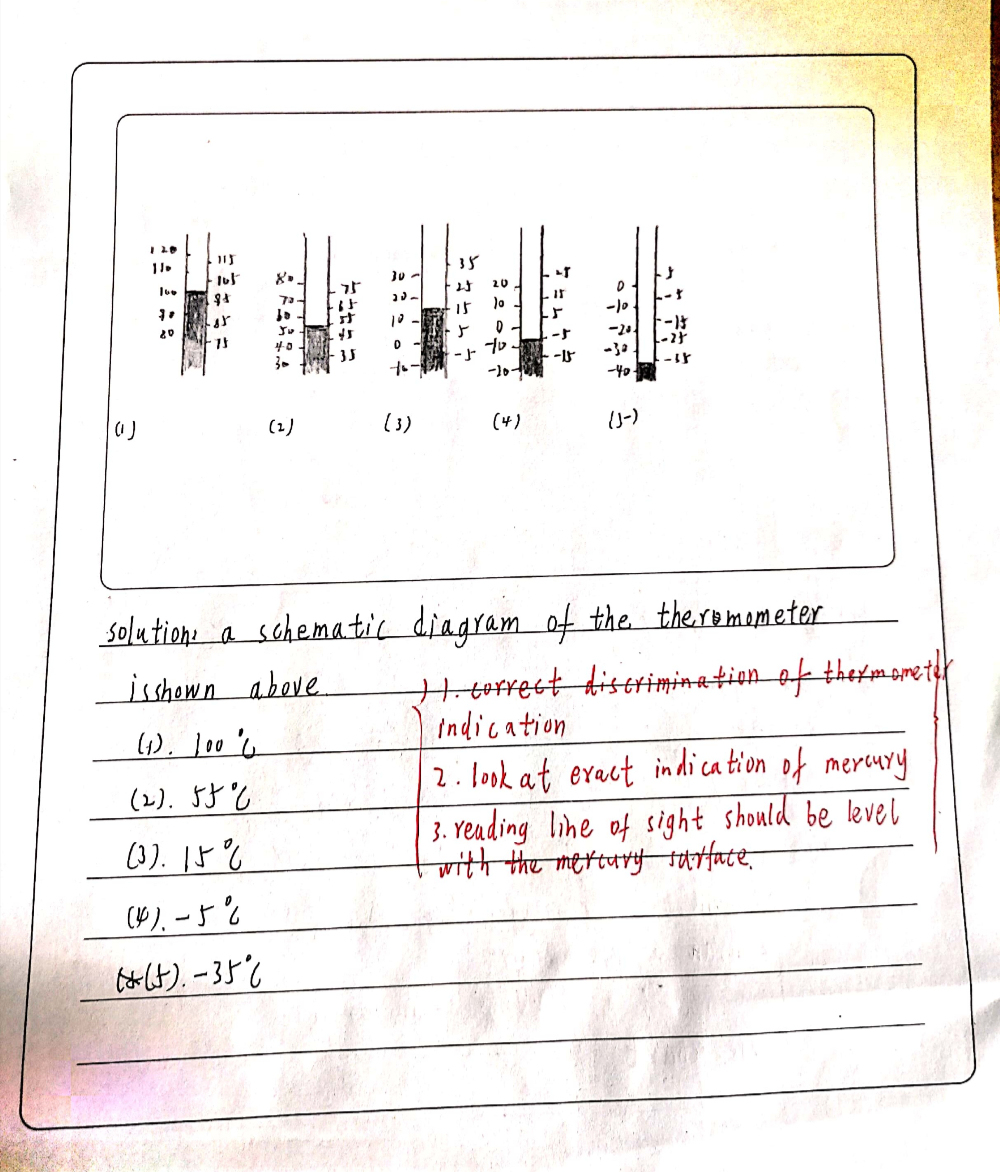 120
110
100
90
80
115
105
95
85
75
(1)
80
70
60
50
40
30
75
65
55
45
35
(2)
30
20
10
0
-10
35
25
15
5
-5
(3)
20
10
0
-10
-20
25
15
5
-5
-15
(4)
0
-10
-20
-30
-40
5
-5
-15
-25
-35
(5)
solution: a schematic diagram of the theromometer
isshown above.
(1). 100℃
(2). 55℃
(3). 15℃
(4). -5℃
(5). -35℃
1. correct discrimination of thermometer
indication
2. look at exact indication of mercury
3. reading line of sight should be level
with the mercury surface.